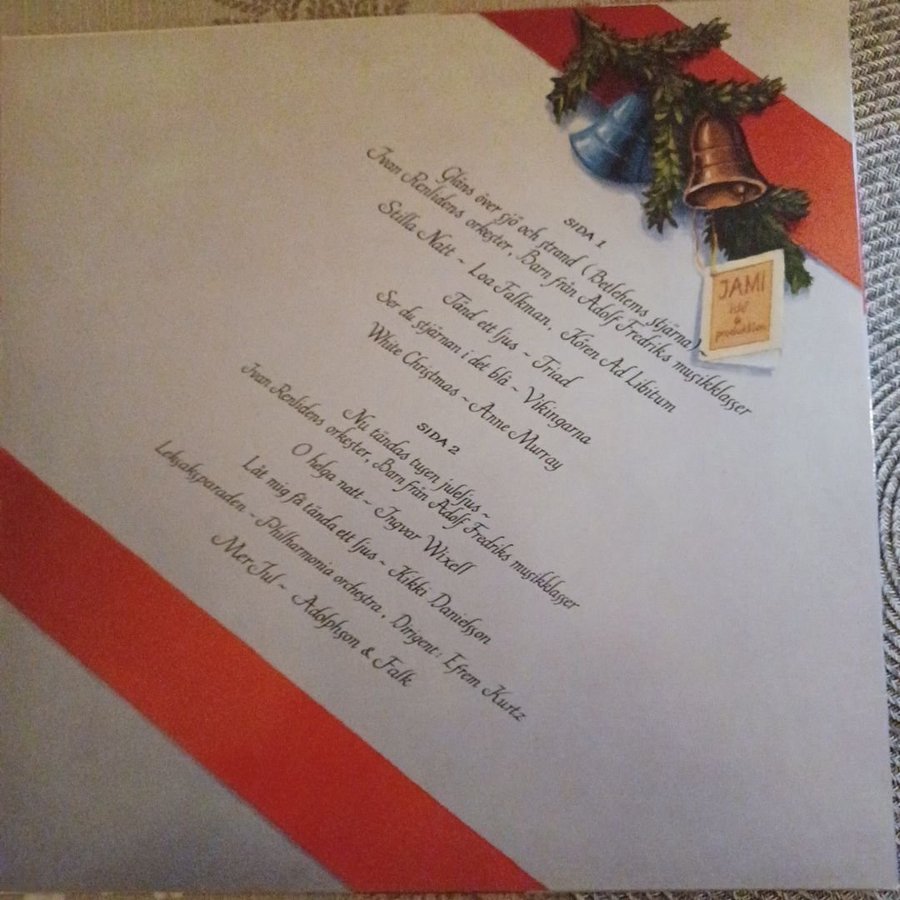 SIDA 1
Gläns över sjö och strand (Betlehems stjärna) ~
Ivan Renlidens orkester, Barn från Adolf Fredriks musikklasser
Stilla Natt ~ Loa Falkman, Kören Ad Libitum
Tänd ett ljus ~ Triad
Ser du stjärnan i det blå ~ Vikingarna
White Christmas ~ Anne Murray
SIDA 2
Nu tändas tusen juleljus ~
Ivan Renlidens orkester, Barn från Adolf Fredriks musikklasser
O helga natt ~ Ingvar Wixell
Låt mig få tända ett ljus ~ Kikki Danielsson
Leksaksparaden ~ Philharmonia orchestra, Dirigent: Efrem Kurtz
Mer Jul ~ Adolphson & Falk
JAMI
idé &
produktion